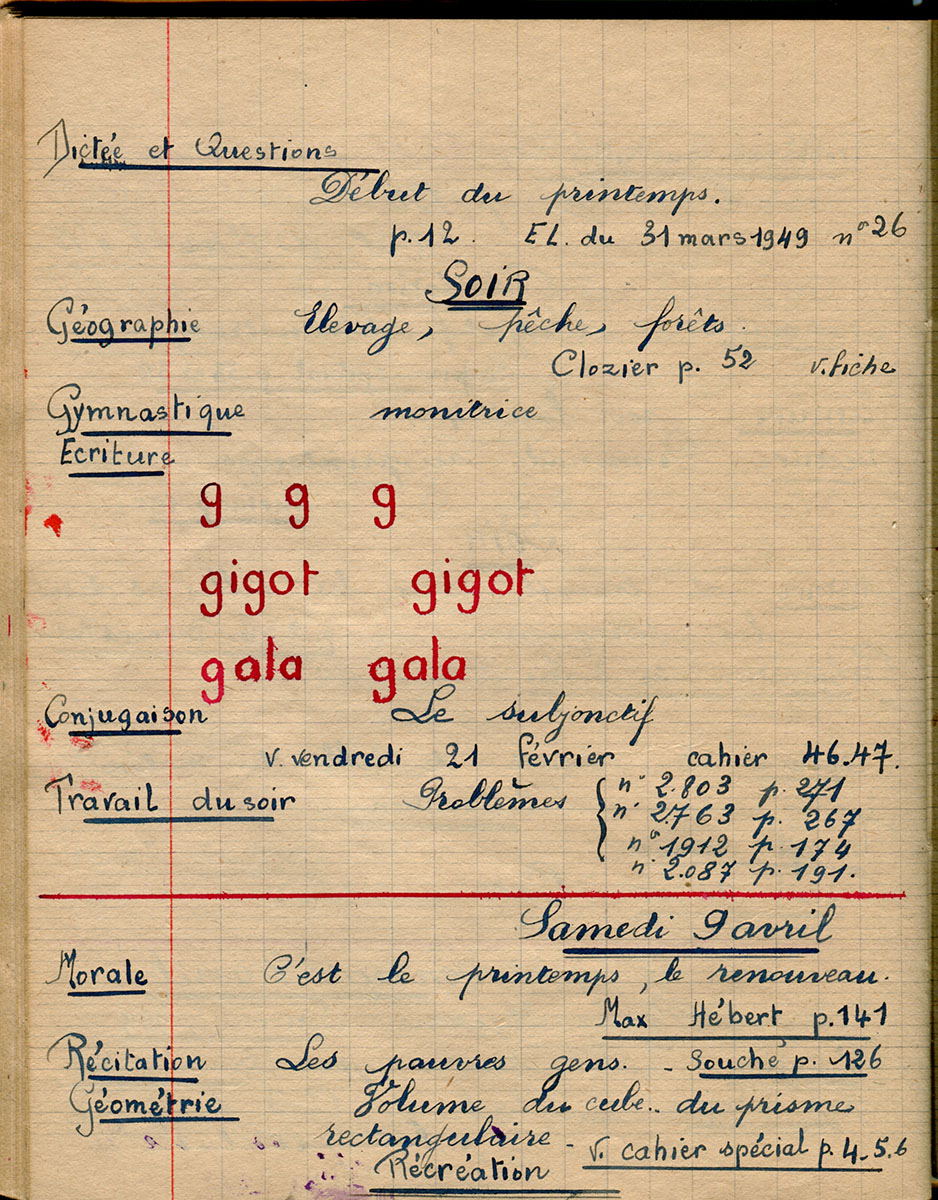 Dictée et Questions
Début du printemps.
p.12. EL. du 31 mars 1949 n° 26
SOIR
Géographie Elevage, pêche, forêts.
Clozier p. 52 v. fiche
Gymnastique monitrice
Ecriture
g g g
gigot gigot
gala gala
Conjugaison Le subjonctif
v. vendredi 21 février cahier 46.47.
Travail du soir Problèmes { n° 2.803 p. 271
n° 2.763 p. 267
n° 1912 p. 174
n° 2.087 p. 191.
Samedi 9 avril
Morale C'est le printemps, le renouveau.
Max Hébert p.141
Récitation Les pauvres gens. - Souché p. 126
Géométrie Volume du cube.. du prisme
rectangulaire - v. cahier spécial p. 4-5.6
Récréation